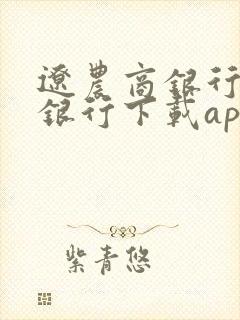 遼農商銀行
銀行下載ap
紫青悠